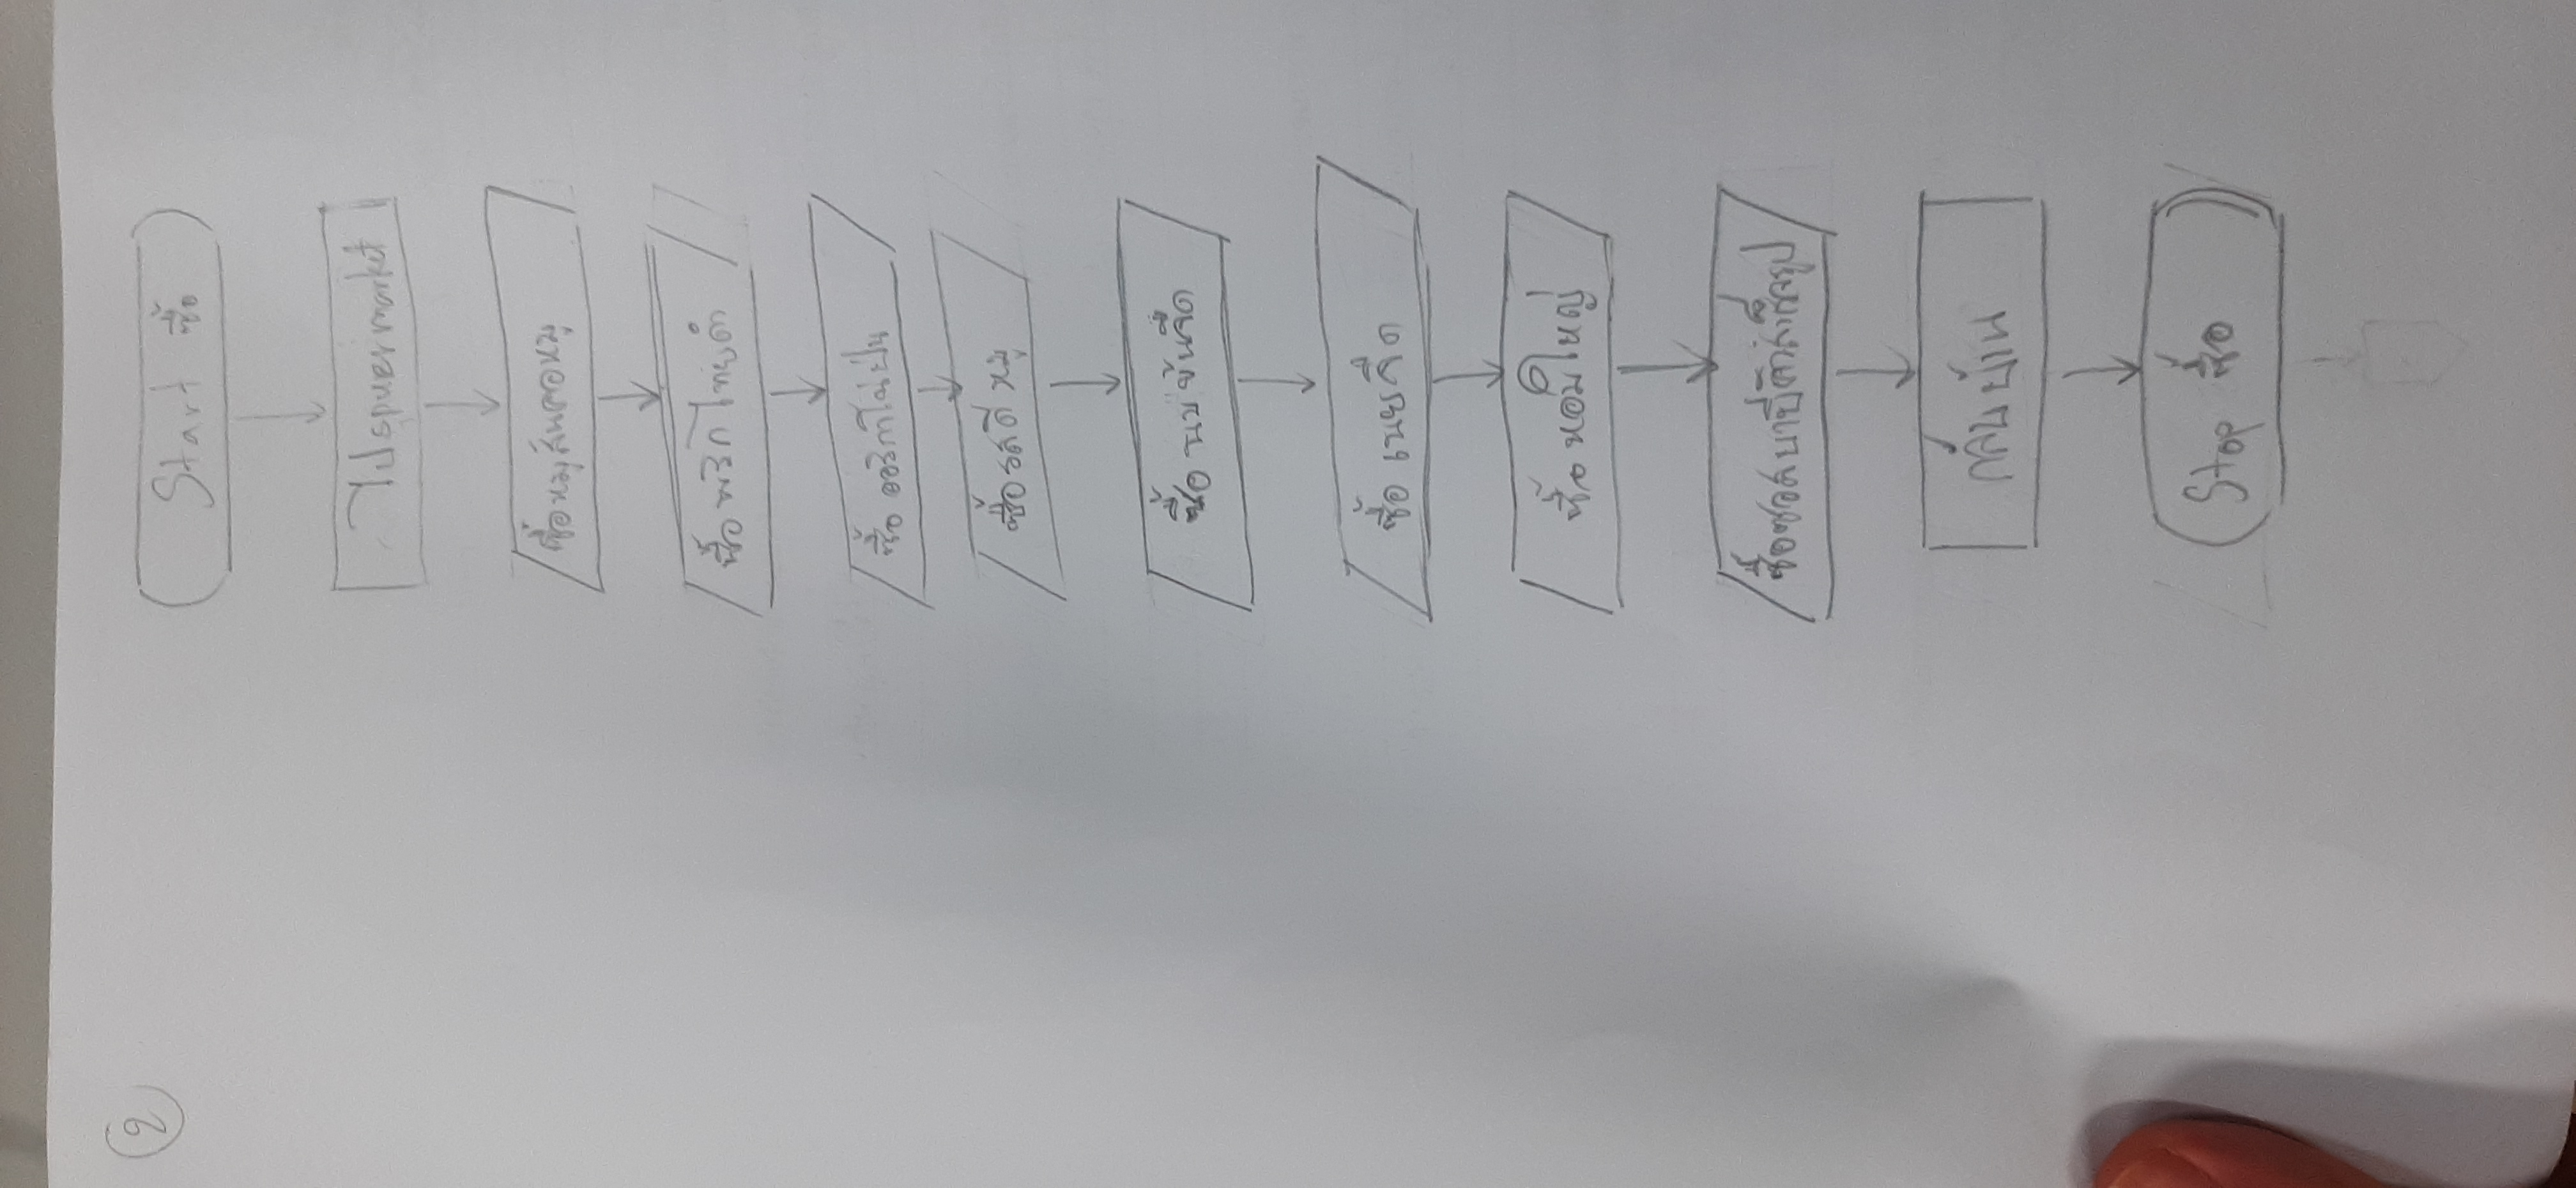 2
Start ซื้อ
ไปspuermarket
ซื้อหมูสันคอหมู
ซื้อ พริกไทยดำ
ซื้อ ออริกาโน่ป่น
ซื้อรสดีหมู
ซื้อ นมข้นจืด
ซื้อ เนยจืด
ซื้อ หอมใหญ่
ซื้อซอสบาบีคิวสำเร็จรูป
กลับบ้าน
Stop ซื้อ